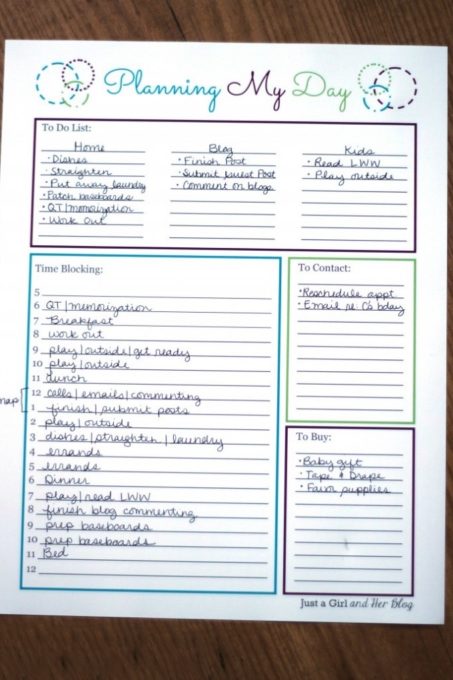 Planning My Day
To Do List:
Home
· Dishes
· Straighten
· Put away laundry
· Patch baseboards
· QT/memorization
· Work Out
Blog
· Finish Post
· Submit Guest Post
· Comment on blogs
Kids
· Read LWW
· Play outside
Time Blocking:
5
6 QT/memorization
7 Breakfast
8 work out
9 play/outside/get ready
10 play/outside
11 Lunch
nap
12 calls/emails/commenting
1 finish/submit posts
2 play/outside
3 dishes/straighten/laundry
4 errands
5 errands
6 Dinner
7 play/read LWW
8 finish blog commenting
9 prep baseboards
10 prep baseboards
11 Bed
12
To Contact:
· Reschedule appt
· Email re: C's bday
To Buy:
· Baby gift
· Tape & Drape
· Favor supplies
Just a Girl and Her Blog